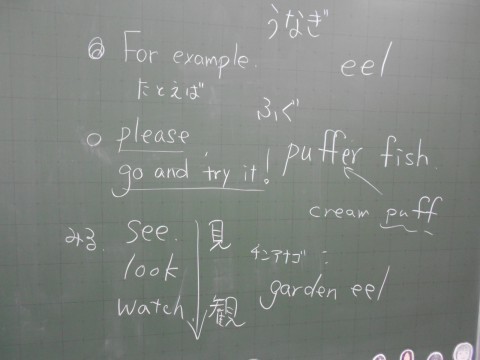 For example.
たとえば
please
go and try it!
みる
see.
look
watch.
見
観
うなぎ
eel
ふぐ
puffer fish.
cream puff
チンアナゴ:
garden eel